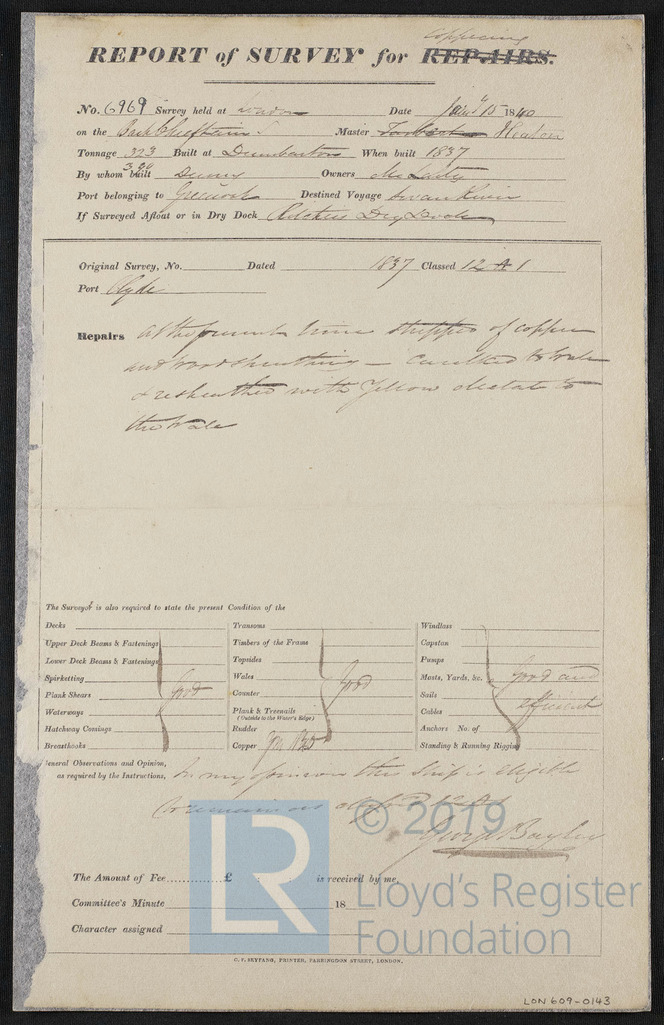 Coppering
REPORT of SURVEY for REPAIRS.
No. 6969 Survey held at London Date Jany 15 1840
on the Bark Chieftain Master Heaton
Tonnage 323 Built at Dumbarton When built 1837
320
By whom built Denny Owners
Port belonging to Greenock Destined Voyage Swan River
If Surveyed Afloat or in Dry Dock Fletchers Dry Dock
Original Survey, No. Dated 1837 Classed 12 A 1
Port Clyde
Repairs at the present time stripped of copper
and wood sheathing – Caulked to Wale
& resheathed with Yellow Metal to
the Wale
The Surveyor is also required to state the present Condition of the
Decks
Upper Deck Beams & Fastenings
Lower Deck Beams & Fastenings
Spirketting
Plank Shears Good
Waterways
Hatchway Comings
Breasthooks
Transoms
Timbers of the Frame
Topsides
Wales Good
Counter
Plank & Treenails
(Outside to the Water's Edge)
Rudder
Copper
Windlass
Capstan
Pumps
Masts, Yards, &c. Good and
Sails efficient
Cables
Anchors No. of
Standing & Running Rigging
General Observations and Opinion, In my opinion this Ship is eligible
as required by the Instructions,
to remain as
George Bayley
The Amount of Fee............£ is received by me,
Committee's Minute 18
Character assigned
C. F. SEYFANG, PRINTER, FARRINGDON STREET, LONDON.
© 2019
LR
Lloyd's Register
Foundation
LON 609-0143